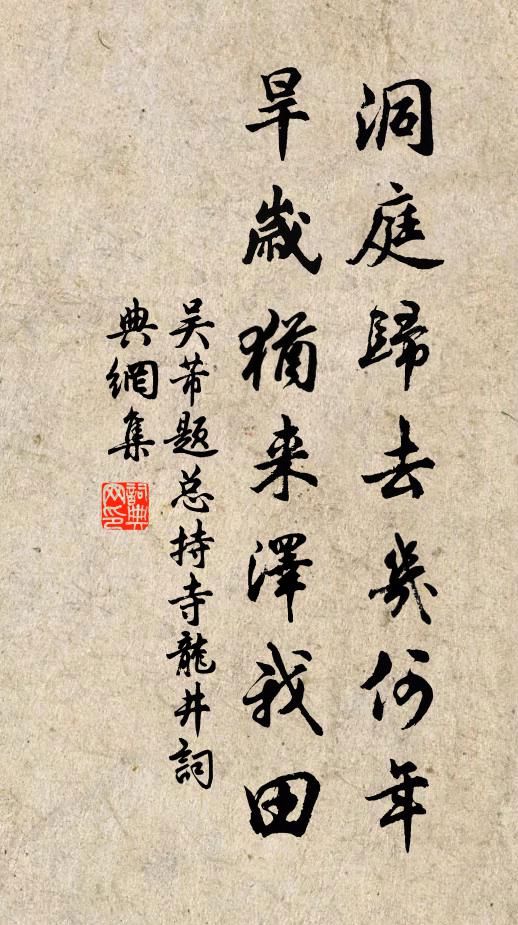 洞庭歸去幾何年
旱歲猶来澤我田
吴芾题总持寺龍井詞
典網集
詞典
网印